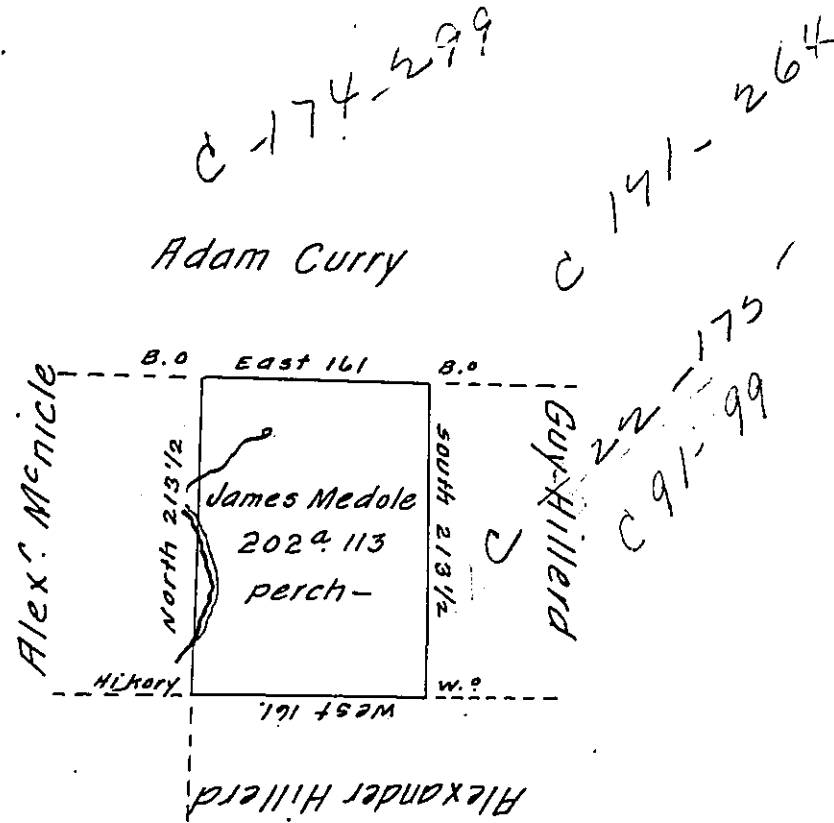 C-174-299
C 141-264
Adam Curry
C 22-175
C 91-99
B.O East 161 B.O
Alexr. McNicle
North 213 1/2
James Medole
202a. 113
perch-
South 213 1/2
Guy Hillerd
Hikory
W.O
West 161.
Alexander Hillerd